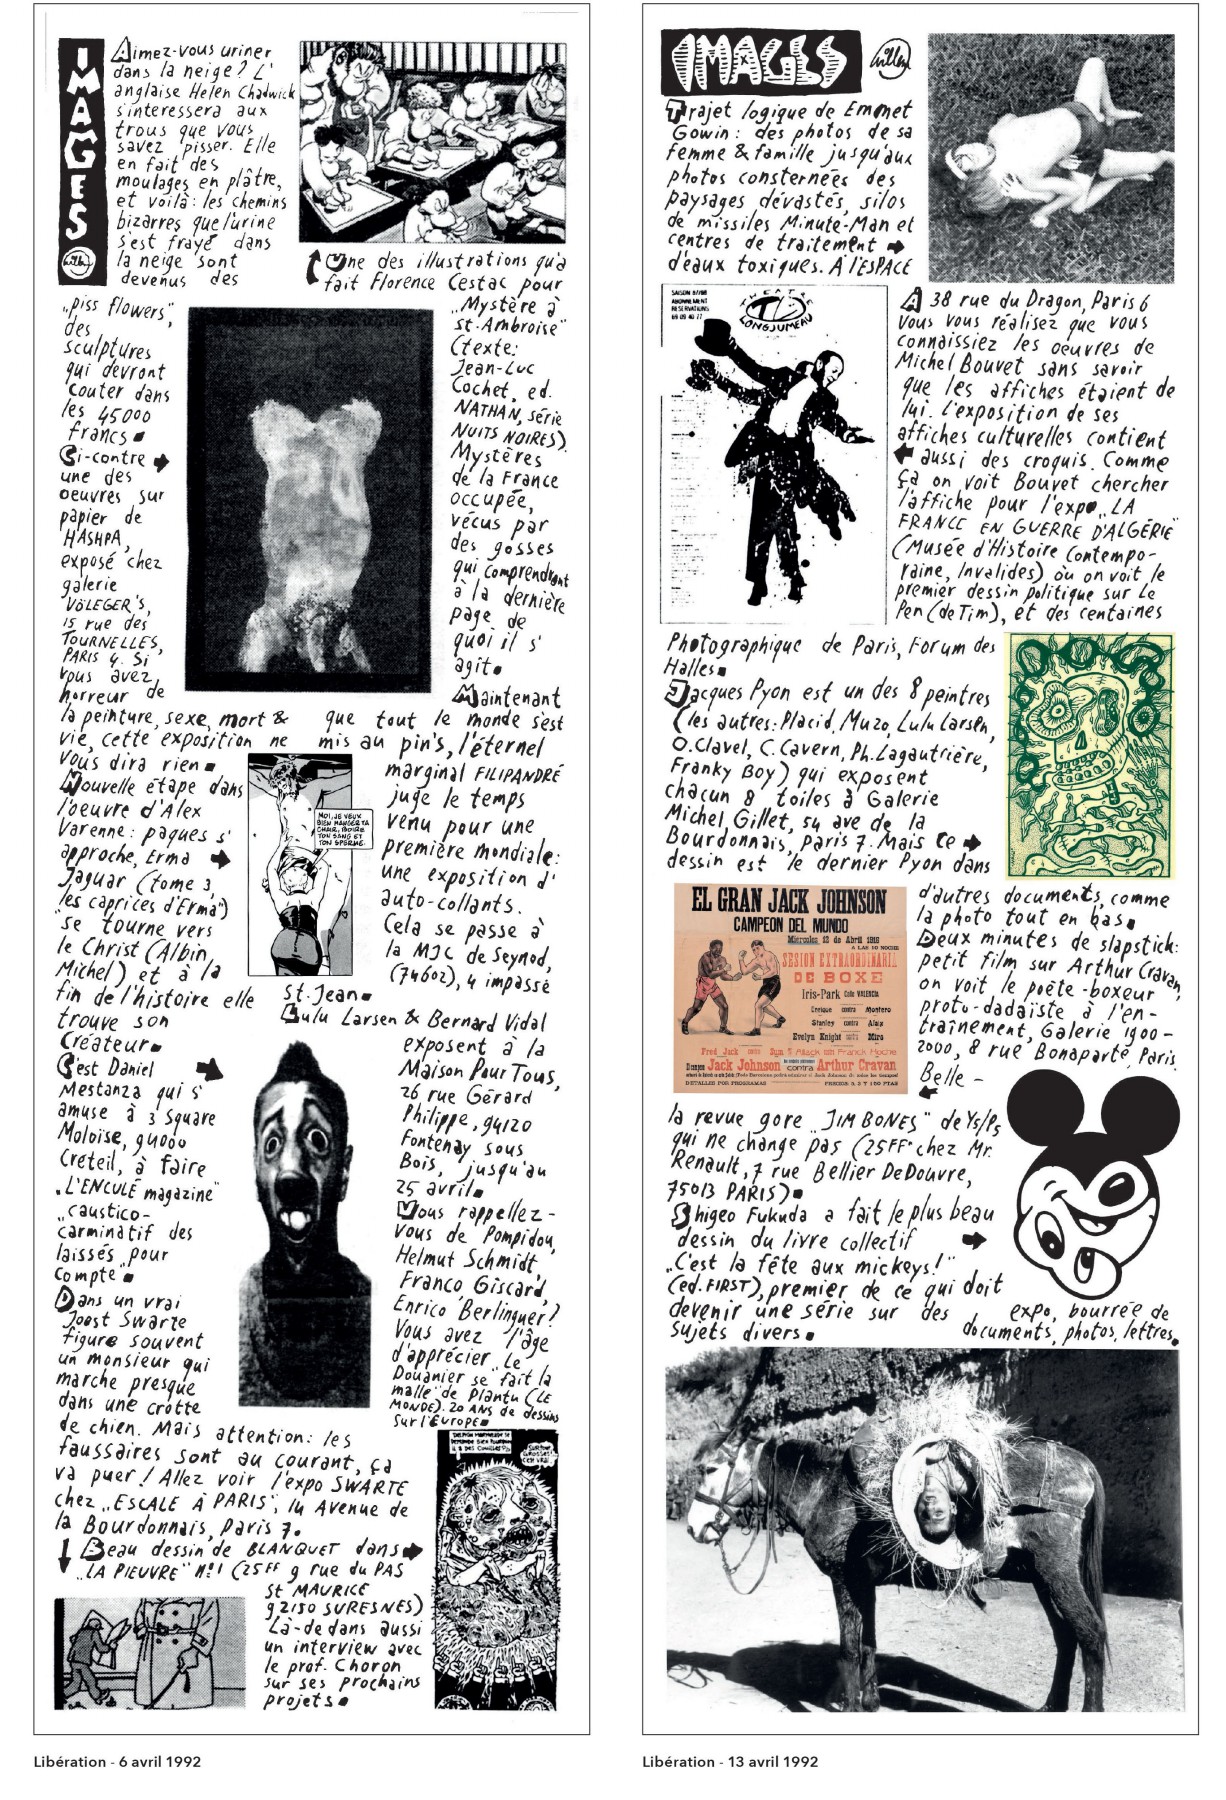 IMAGES
Willem
Aimez-vous uriner
dans la neige? L'
anglaise Helen Chadwick
s'interessera aux
trous que vous
savez pisser. Elle
en fait des
moulages en plâtre,
et voilà: les chemins
bizarres que l'urine
s'est frayé dans
la neige sont
devenus des
„piss flowers",
des
sculptures
qui devront
couter dans
les 45000
francs.
Ci-contre
une des
oeuvres sur
papier de
HASHPA,
exposé chez
galerie
VöLEGER'S,
15 rue des
TOURNELLES,
PARIS 4. Si
vous avez
horreur de
la peinture, sexe, mort &
vie, cette exposition ne
vous dira rien.
Nouvelle étape dans
l'oeuvre d'Alex
Varenne: paques s'
approche, Erma
Jaguar (tome 3,
"les caprices d'Erma")
se tourne vers
le Christ (Albin
Michel) et à la
fin de l'histoire elle
trouve son
Créateur.
C'est Daniel
Mestanza qui s'
amuse à 3 Square
Moloise, 94000
Creteil, à faire
„L'ENCULÉ magazine"
„caustico-
carminatif des
laissés pour
compte.
Dans un vrai
Joost Swarte
figure souvent
un monsieur qui
marche presque
dans une crotte
de chien. Mais attention: les
faussaires sont au courant, ça
va puer! Allez voir l'expo SWARTE
chez „ESCALE À PARIS", 14 Avenue de
la Bourdonnais, Paris 7.
Beau dessin de BLANQUET dans
„LA PIEUVRE" N°1 (25FF 9 rue du PAS
St MAURICE
92150 SURESNES)
Là-dedans aussi
un interview avec
le prof. Choron
sur ses prochains
projets.
Une des illustrations qu'a
fait Florence Cestac pour
„Mystère à
St-Ambroise"
(texte:
Jean-Luc
Cochet, ed.
NATHAN, série
NUITS NOIRES).
Mystères
de la France
occupée,
vécus par
des gosses
qui comprendront
à la dernière
page de
quoi il s'
agit.
Maintenant
que tout le monde s'est
mis au pin's, l'éternel
marginal FILIPANDRÉ
juge le temps
venu pour une
première mondiale:
une exposition d'
auto-collants.
Cela se passe à
la MJC de Seynod,
(74602), 4 impasse
St. Jean.
MOI, JE VEUX
BIEN MANGER TA
CHAIR, BOIRE
TON SANG ET
TON SPERME.
Lulu Larsen & Bernard Vidal
exposent à la
Maison Pour Tous,
26 rue Gérard
Philippe, 94120
Fontenay sous
Bois, jusqu'au
25 avril.
Vous rappellez-
vous de Pompidou,
Helmut Schmidt
Franco, Giscard,
Enrico Berlinguer?
Vous avez l'âge
d'apprécier „Le
Douanier se fait la
malle" de Plantu (LE
MONDE). 20 ANS de dessins
sur l'EUROPE.
Libération - 6 avril 1992
IMAGES
Willem
Trajet logique de Emmet
Gowin: des photos de sa
femme & famille jusqu'aux
photos consternées des
paysages dévastés, silos
de missiles Minute-Man et
centres de traitement
d'eaux toxiques. À l'ESPACE
SAISON 87/88
ABONNEMENT
RESERVATIONS
69 09 40 77
THEATRE
LONGJUMEAU
À 38 rue du Dragon, Paris 6
vous vous réalisez que vous
connaissiez les oeuvres de
Michel Bouvet sans savoir
que les affiches étaient de
lui. L'exposition de ses
affiches culturelles contient
aussi des croquis. Comme
ça on voit Bouvet chercher
l'affiche pour l'expo „LA
FRANCE EN GUERRE D'ALGÉRIE"
(Musée d'Histoire Contempo-
raine, Invalides) où on voit le
premier dessin politique sur Le
Pen (de Tim), et des centaines
Photographique de Paris, Forum des
Halles.
Jacques Pyon est un des 8 peintres
(les autres: Placid, Muzo, Lulu Larsen,
O. Clavel, C. Cavern, Ph. Lagautrière,
Franky Boy) qui exposent
chacun 8 toiles à Galerie
Michel Gillet, 54 ave de la
Bourdonnais, Paris 7. Mais ce
dessin est le dernier Pyon dans
EL GRAN JACK JOHNSON
CAMPEON DEL MUNDO
Miercoles 12 de Abril 1916
A LAS 10 NOCHE
SESION EXTRAORDINARIA
DE BOXE
Iris-Park Calle VALENCIA
Enrique contra Montero
Stanley contra Alaix
Evelyn Knight contra Miro
Jack Johnson contra Arthur Cravan
DETALLES POR PROGRAMAS
d'autres documents, comme
la photo tout en bas.
Deux minutes de slapstick:
petit film sur Arthur Cravan,
on voit le poëte-boxeur
proto-dadaïste à l'en-
traînement, Galerie 1900-
2000, 8 rue Bonaparte, Paris.
Belle
la revue gore „JIM BONES" de Ys/P5
qui ne change pas (25FF chez Mr.
Renault, 7 rue Bellier DeDouvre,
75013 PARIS).
Shigeo Fukuda a fait le plus beau
dessin du livre collectif
„C'est la fête aux mickeys!"
(ed. FIRST), premier de ce qui doit
devenir une série sur des
sujets divers.
expo, bourrée de
documents, photos, lettres.
Libération - 13 avril 1992